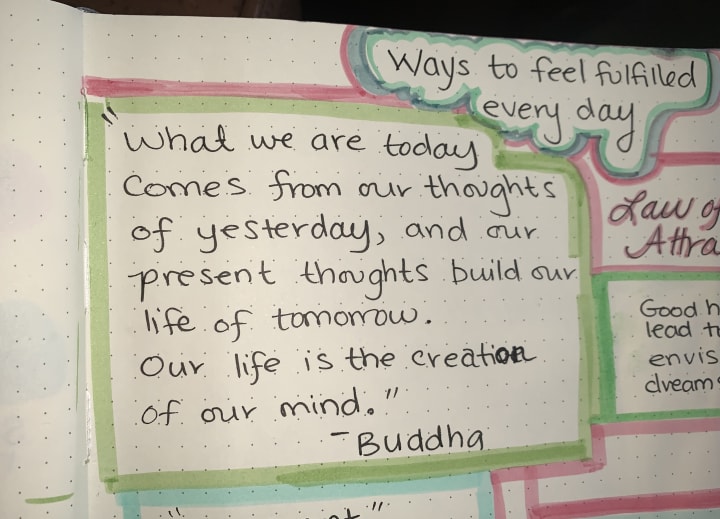 Ways to feel fulfilled
every day
"What we are today
Comes from our thoughts
of yesterday, and our
present thoughts build our
life of tomorrow.
Our life is the creation
of our mind."
- Buddha
Law of
Good
lead